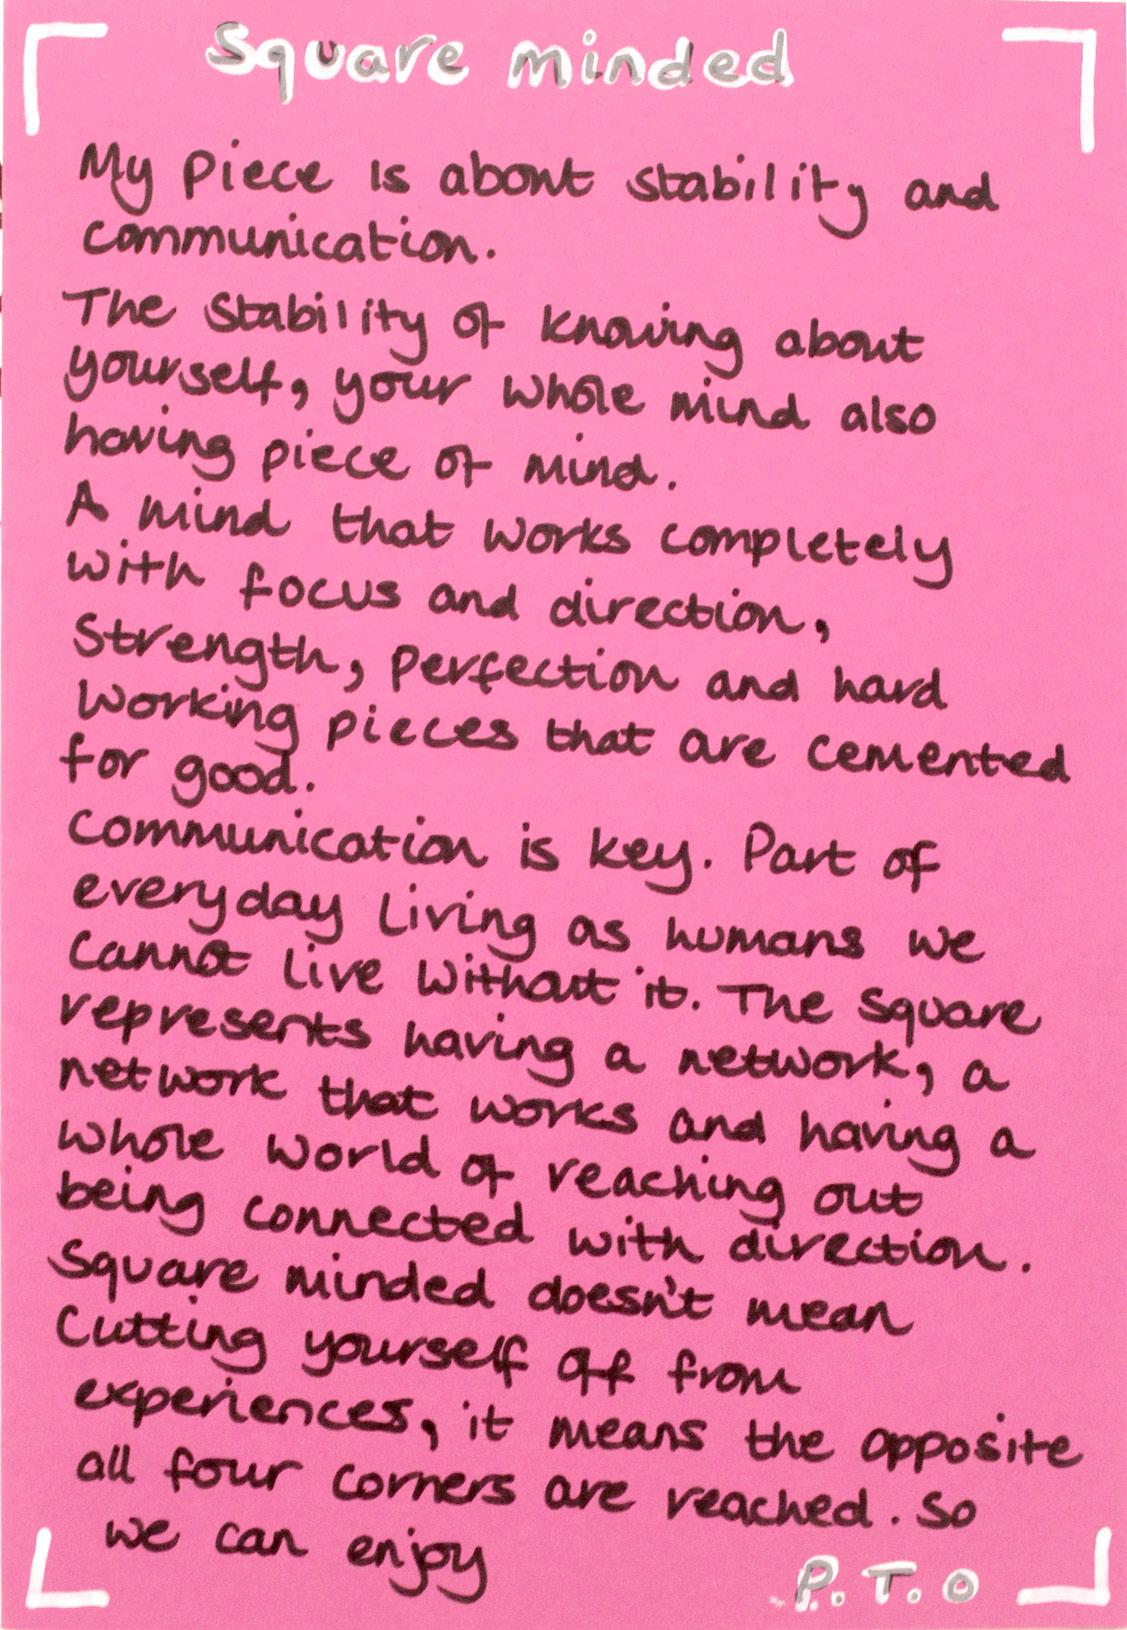 Square minded
My piece is about stability and
communication.
The stability of knowing about
yourself, your whole mind also
having piece of mind.
A mind that works completely
with focus and direction,
Strength, perfection and hard
working pieces that are cemented
for good.
Communication is key. Part of
everyday living as humans we
cannot live without it. The square
represents having a network, a
network that works and having a
whole world of reaching out
being connected with direction.
Square minded doesn't mean
Cutting yourself off from
experiences, it means the opposite
all four corners are reached. So
we can enjoy
P.T.O